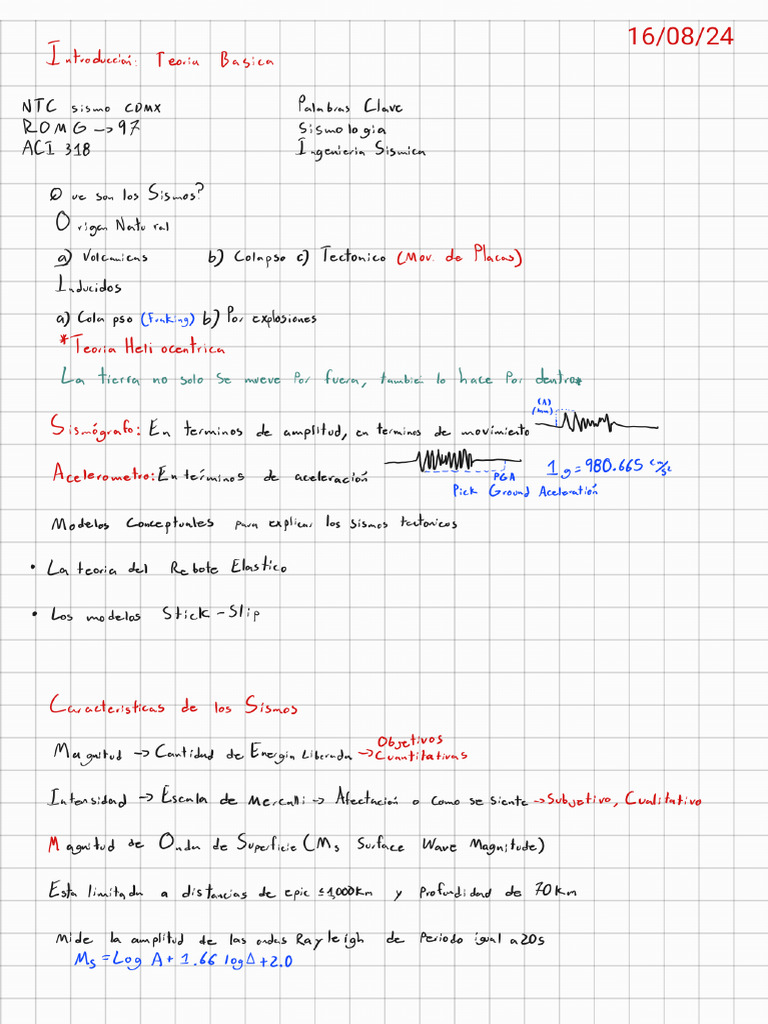 16/08/24
Introducción: Teoria Basica
NTC sismo CDMX
ROMG -> 97
ACI 318
Palabras Clave
Sismologia
Ingenieria Sismica
Que son los Sismos?
Origen Natural
a) Volcanicas b) Colapso c) Tectonico (Mov. de Placas)
Inducidos
a) Colapso (Fraking) b) Por explosiones
*Teoria Heliocentrica
La tierra no solo se mueve Por fuera, también lo hace Por dentro*
Sismógrafo: En terminos de amplitud, en terminos de movimiento
(A)
(mm)
Acelerometro: En términos de aceleración
PGA
Pick Ground Aceleratión
1g = 980.665 c/s²
Modelos Conceptuales para explicar los sismos tectonicos
• La teoria del Rebote Elastico
• Los modelos Stick-Slip
Caracteristicas de los Sismos
Magnitud -> Cantidad de Energia Liberada -> Objetivos
Cuantitativas
Intensidad -> Escala de Mercalli -> Afectación o como se siente -> Subjetivo, Cualitativo
Magnitud de Onda de Superficie (Ms Surface Wave Magnitude)
Esta limitada a distancias de epic ≤1,000km y Profundidad de 70km
Mide la amplitud de las ondas Rayleigh de Periodo igual a 20s
Ms = Log A + 1.66 log Δ + 2.0